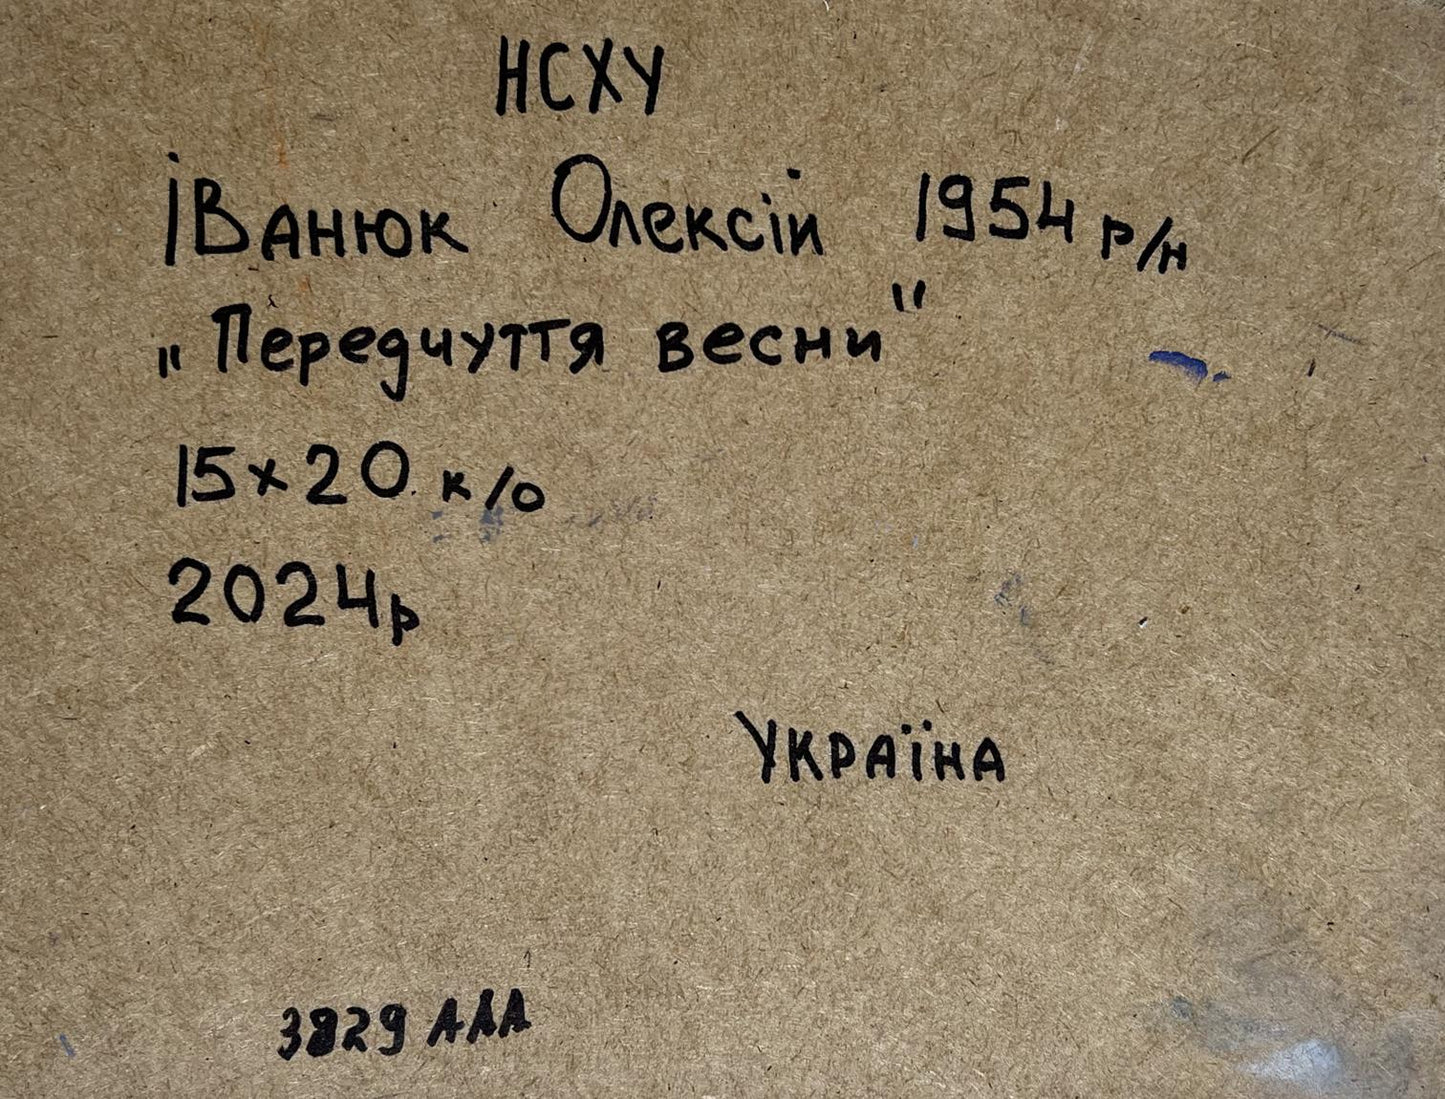 НСХУ
Іванюк Олексій 1954 р/н
„Передчуття весни"
15х20 к/о
2024р
Україна
3829 ААА